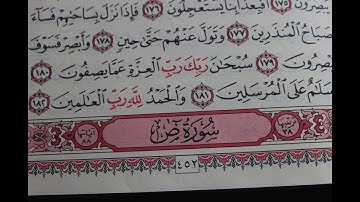 يُبْصِرُونَ ١٧٥ أَفَبِعَذَابِنَا يَسْتَعْجِلُونَ ١٧٦ فَإِذَا نَزَلَ بِسَاحَتِهِمْ فَسَاءَ
صَبَاحُ الْمُنذَرِينَ ١٧٧ وَتَوَلَّ عَنْهُمْ حَتَّى حِينٍ ١٧٨ وَأَبْصِرْ فَسَوْفَ
يُبْصِرُونَ ١٧٩ سُبْحَانَ رَبِّكَ رَبِّ الْعِزَّةِ عَمَّا يَصِفُونَ ١٨٠
وَسَلَامٌ عَلَى الْمُرْسَلِينَ ١٨١ وَالْحَمْدُ لِلَّهِ رَبِّ الْعَالَمِينَ ١٨٢
ترتيبها ٣٨ سُورَةُ ص آياتها ٨٨
٤٥٢